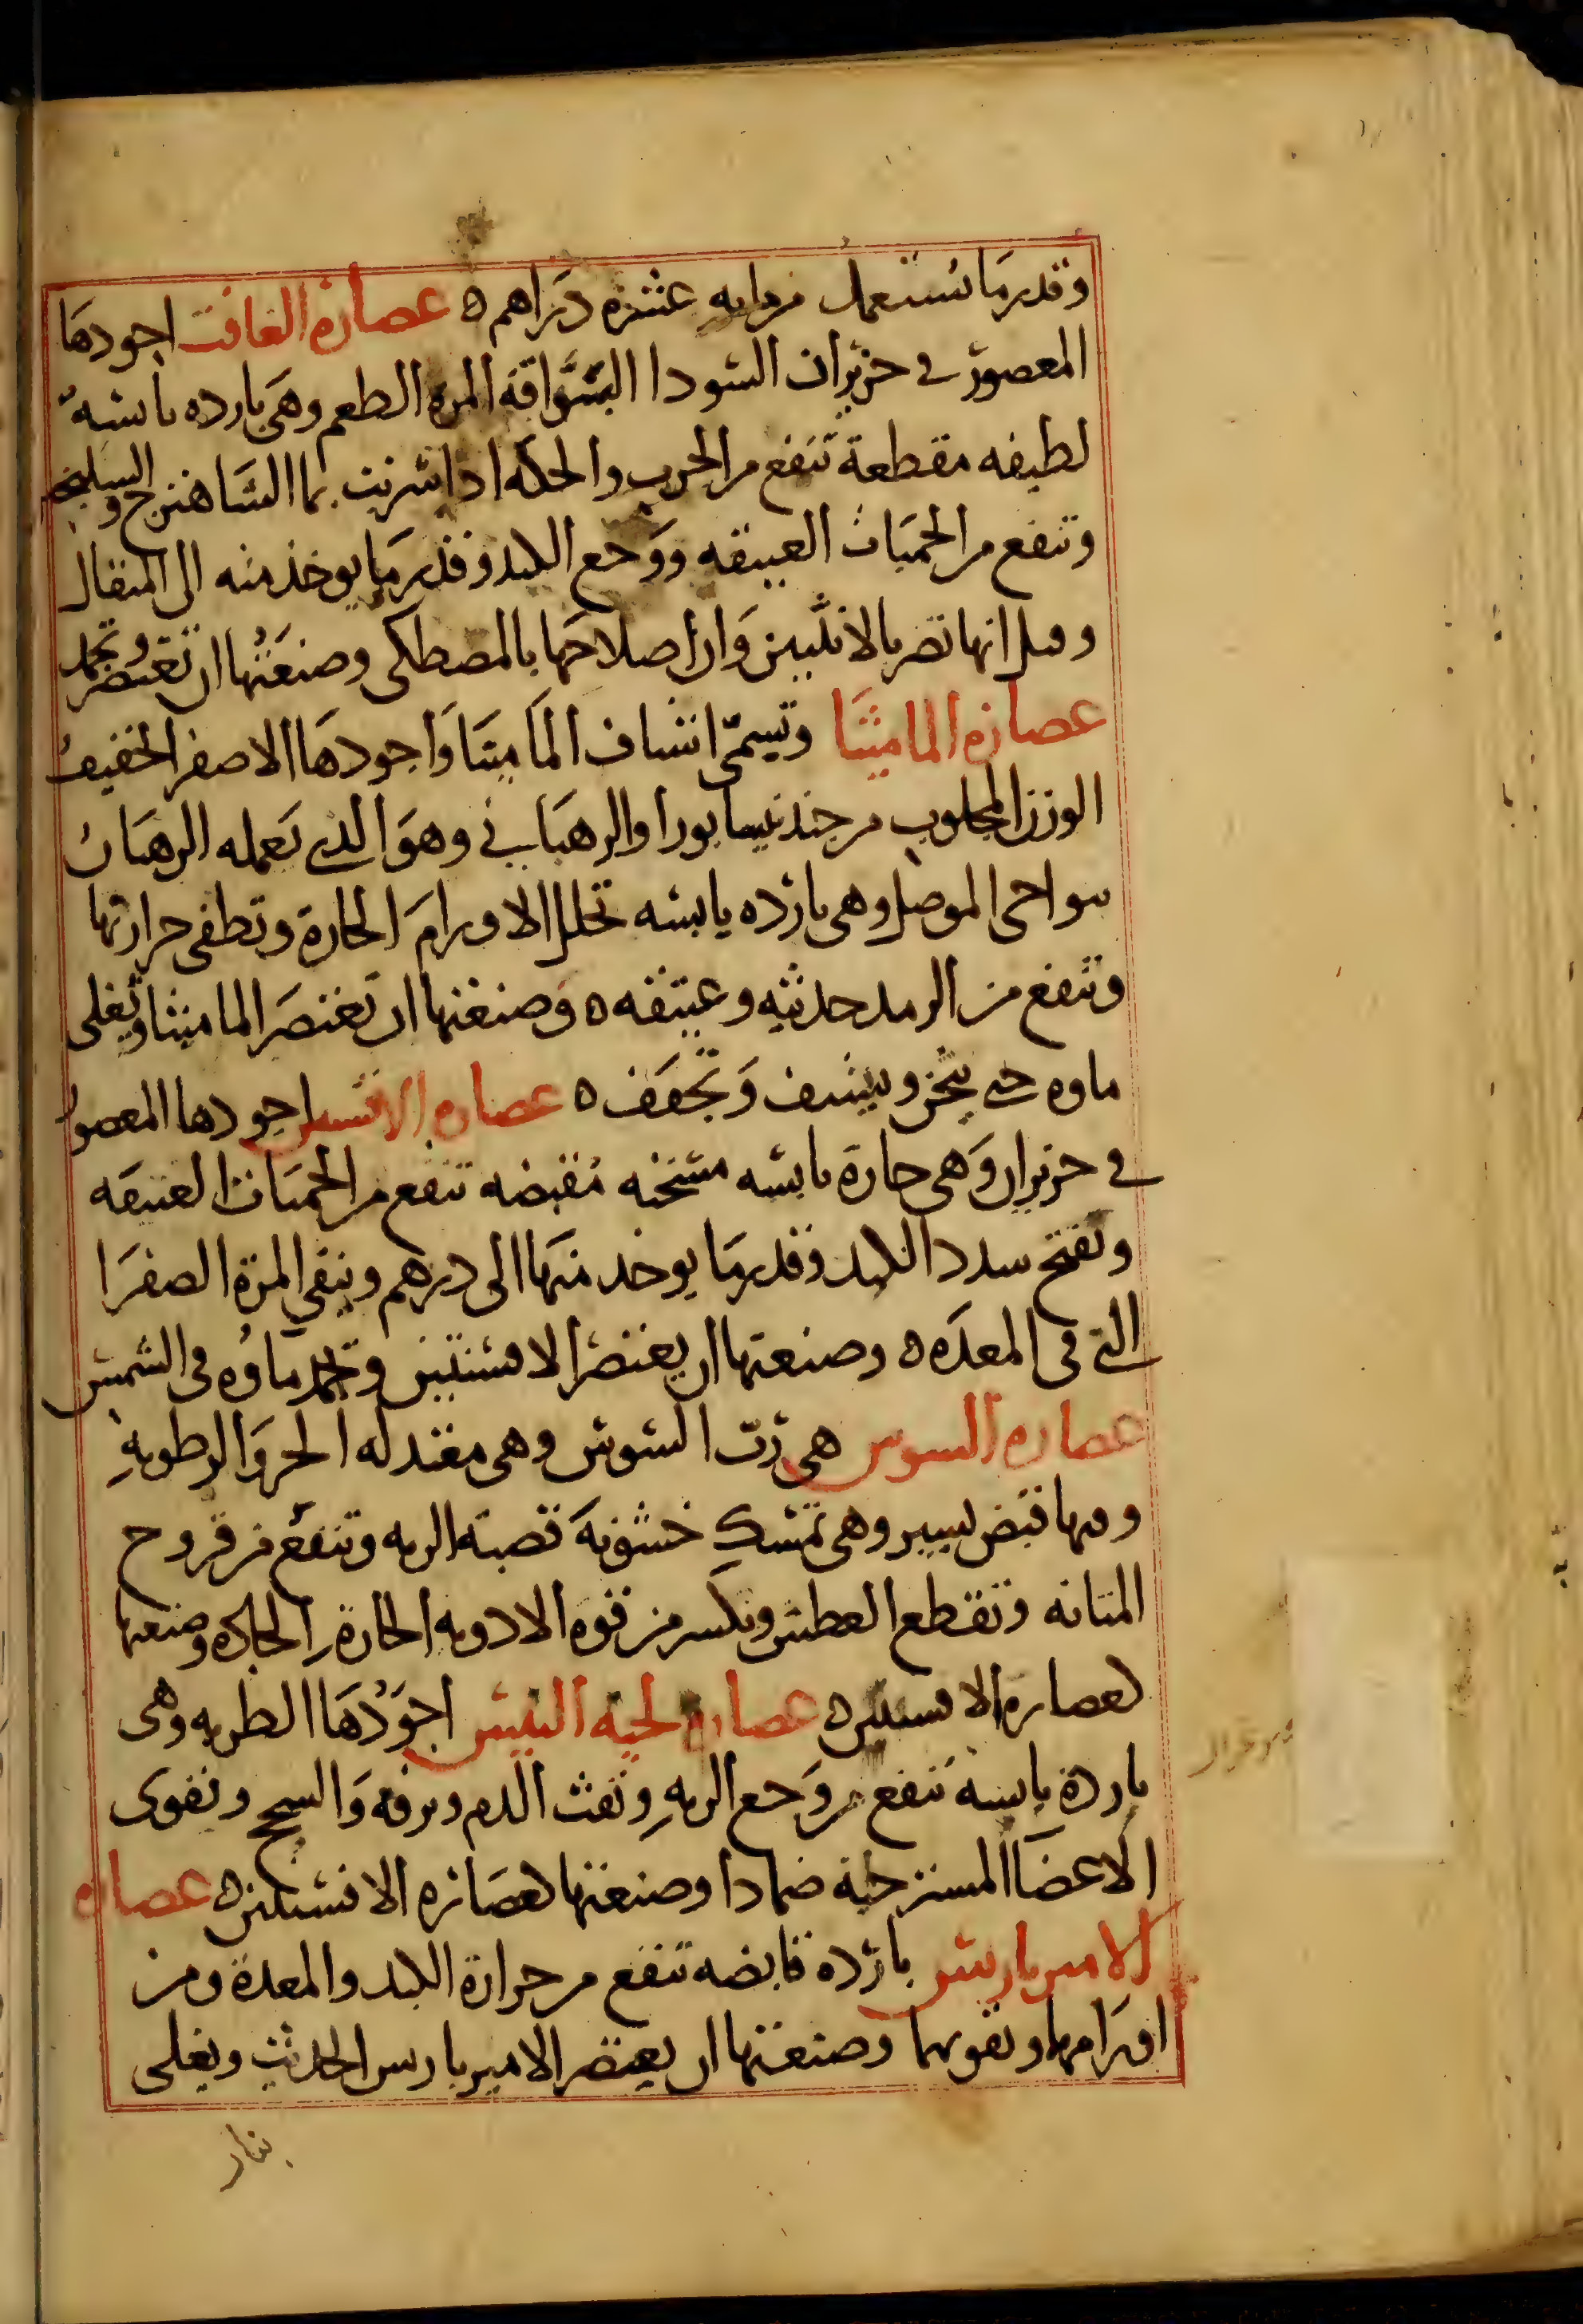 وقدر ما يستعمل من مايه عشره دراهم ه عصارة الغافت اجودها
المعصور فى حزيران السودا البراقة المرة الطعم وهى بارده يابسة
لطيفه مقطعة تنفع من الجرب والحكه اذا شربت بما الشاهترج والسكنجبين
وتنفع من الحميات العتيقه ووجع الكبد وقدر ما يوخذ منه الى المثقال
وقيل انها تضر بالانثيين وان اصلاحها بالمصطكى وصنعتها ان تعتصر وتجمد
عصارة المامیثا وتسمى اشياف الماميثا واجودها الاصفر الخفيف
الوزن المجلوب من جندنيسابور او الرهبانى وهو الذى يعمله الرهبان
بنواحى الموصل وهى بارده يابسه تحلل الاورام الحارة وتطفى حرارتها
وتنفع من الرمد حديثه وعتيقه ه وصنعتها ان تعتصر الماميثا ويغلى
ماوه حتى يثخن ويشف ويجفف ه عصاره الافسنتين اجودها المعصور
فى حزيران وهى حارة يابسه مسخنه مقبضه تنفع من الحميات العتيقه
وتفتح سدد الكبد وقدر ما يوخد منها الى درهم وينقى المرة الصفرا
التى فى المعده ه وصنعتها ان يعتصر الافسنتين ويجمد ماوه فى الشمس
عصاره السوس هى رب السوس وهى معتدله الحر والرطوبة
وفيها قبض يسير وهى تمسك خشونة قصبة الريه وتنفع من قروح
المثانه وتقطع العطش وتكسر من قوه الادويه الحارة الحادة وصنعتها
كعصارة الافسنتين ه عصارة لحية التيس اجودها الطريه وهى
باردة يابسة تنفع من وجع الريه ونفث الدم ونزفه والسحج وتقوى
الاعضا المسترخية ضمادا وصنعتها كعصارة الافسنتين ه عصاره
الاميرباريس باردة قابضه تنفع من حرارة الكبد والمعدة ومن
اورامها وتقويهما وصنعتها ان يعتصر الاميرباريس الحديث ويغلى
بنار